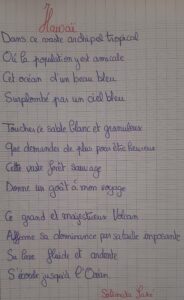 Hawaï
Dans ce vaste archipel tropical
Où la population y est amicale
Cet océan d'un beau bleu
Surplombé par un ciel bleu
Toucher ce sable blanc et granuleux
Que demander de plus pour être heureux
Cette vaste forêt sauvage
Donne un goût à mon voyage
Ce grand et majestueux Volcan
Affirme sa dominance par sa taille imposante
Sa lave fluide et ardente
S'écoule jusqu'à l'Océan